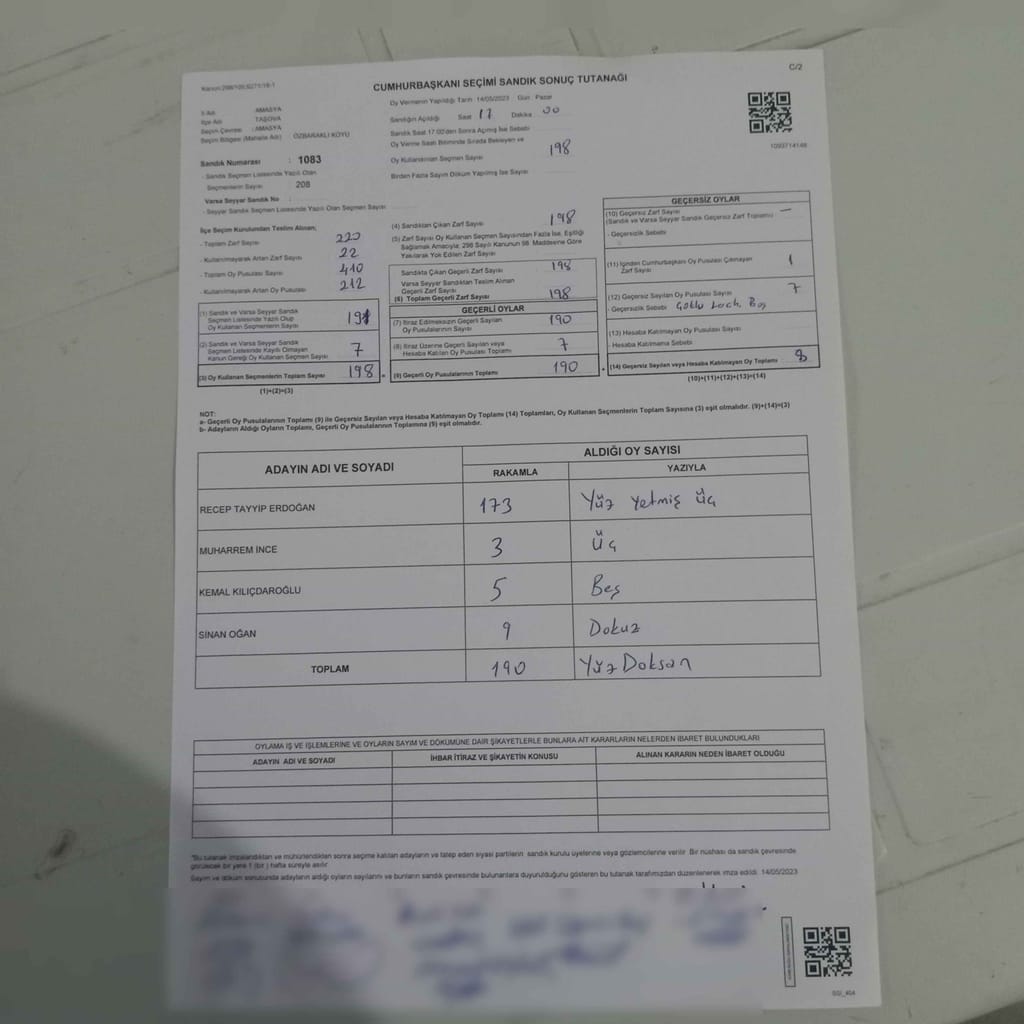 C/2
CUMHURBAŞKANI SEÇİMİ SANDIK SONUÇ TUTANAĞI
İli Adı : AMASYA
İlçe Adı : TAŞOVA
Seçim Çevresi : AMASYA
Seçim Bölgesi (Mahalle Adı) ÖZBARAKLI KÖYÜ
Sandık Numarası : 1083
- Sandık Seçmen Listesinde Yazılı Olan
Seçmenlerin Sayısı 208
Varsa Seyyar Sandık No :
- Seyyar Sandık Seçmen Listesinde Yazılı Olan Seçmen Sayısı
Oy Vermenin Yapıldığı Tarih 14/05/2023 Gün : Pazar
Sandığın Açıldığı Saat 17 Dakika 00
Sandık Saat 17:00'den Sonra Açılmış İse Sebebi
Oy Verme Saati Bitiminde Sırada Bekleyen ve
Oy Kullandırılan Seçmen Sayısı 198
Birden Fazla Sayım Döküm Yapılmış İse Sayısı
1093714148
İlçe Seçim Kurulundan Teslim Alınan;
- Toplam Zarf Sayısı 220
- Kullanılmayarak Artan Zarf Sayısı 22
- Toplam Oy Pusulası Sayısı 410
- Kullanılmayarak Artan Oy Pusulası 212
(1) Sandık ve Varsa Seyyar Sandık
Seçmen Listesinde Yazılı Olup
Oy Kullanan Seçmenlerin Sayısı 191
(2) Sandık ve Varsa Seyyar Sandık
Seçmen Listesinde Kayıtlı Olmayan
Kanun Gereği Oy Kullanan Seçmen Sayısı 7
(3) Oy Kullanan Seçmenlerin Toplam Sayısı 198
(1)+(2)=(3)
(4) Sandıktan Çıkan Zarf Sayısı 198
(5) Zarf Sayısı Oy Kullanan Seçmen Sayısından Fazla İse, Eşitliği
Sağlamak Amacıyla; 298 Sayılı Kanunun 98. Maddesine Göre
Yakılarak Yok Edilen Zarf Sayısı
Sandıkta Çıkan Geçerli Zarf Sayısı 198
Varsa Seyyar Sandıktan Teslim Alınan
Geçerli Zarf Sayısı
(6) Toplam Geçerli Zarf Sayısı 198
GEÇERLİ OYLAR
(7) İtiraz Edilmeksizin Geçerli Sayılan
Oy Pusulalarının Sayısı 190
(8) İtiraz Üzerine Geçerli Sayılan veya
Hesaba Katılan Oy Pusulası Toplamı 7
(9) Geçerli Oy Pusulalarının Toplamı 190
GEÇERSİZ OYLAR
(10) Geçersiz Zarf Sayısı —
(Sandık ve Varsa Seyyar Sandık Geçersiz Zarf Toplamı)
- Geçersizlik Sebebi
(11) İçinden Cumhurbaşkanı Oy Pusulası Çıkmayan 1
Zarf Sayısı
(12) Geçersiz Sayılan Oy Pusulası Sayısı 7
- Geçersizlik Sebebi
(13) Hesaba Katılmayan Oy Pusulası Sayısı
- Hesaba Katılmama Sebebi
(14) Geçersiz Sayılan veya Hesaba Katılmayan Oy Toplamı 8
(10)+(11)+(12)+(13)=(14)
NOT:
a- Geçerli Oy Pusulalarının Toplamı (9) ile Geçersiz Sayılan veya Hesaba Katılmayan Oy Toplamı (14) Toplamları, Oy Kullanan Seçmenlerin Toplam Sayısına (3) eşit olmalıdır. (9)+(14)=(3)
b- Adayların Aldığı Oyların Toplamı, Geçerli Oy Pusulalarının Toplamına (9) eşit olmalıdır.
ADAYIN ADI VE SOYADI ALDIĞI OY SAYISI
RAKAMLA YAZIYLA
RECEP TAYYİP ERDOĞAN 173 Yüz Yetmiş üç
MUHARREM İNCE 3 Üç
KEMAL KILIÇDAROĞLU 5 Beş
SİNAN OĞAN 9 Dokuz
TOPLAM 190 Yüz Doksan
OYLAMA İŞ VE İŞLEMLERİNE VE OYLARIN SAYIM VE DÖKÜMÜNE DAİR ŞİKAYETLERLE BUNLARA AİT KARARLARIN NELERDEN İBARET BULUNDUKLARI
ADAYIN ADI VE SOYADI İHBAR İTİRAZ VE ŞİKAYETİN KONUSU ALINAN KARARIN NEDEN İBARET OLDUĞU
*Bu tutanak imzalandıktan ve mühürlendikten sonra seçime katılan adayların ve talep eden siyasi partilerin sandık kurulu üyelerine veya gözlemcilerine verilir. Bir nüshası da sandık çevresinde
görülecek bir yere 1 (bir) hafta süreyle asılır.
Sayım ve döküm sonucunda adayların aldığı oyların sayılarını ve bunların sandık çevresinde bulunanlara duyurulduğunu gösteren bu tutanak tarafımızdan düzenlenerek imza edildi. 14/05/2023